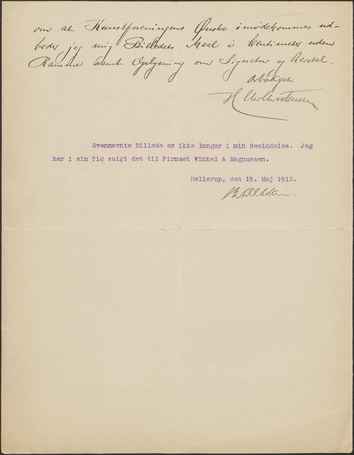 om at Kunstforeningens Ønske imødekommes ud-
beder jeg mig Billedets Maal i Centimeter uden
Ramme samt Oplysning om Signatur og Aarstal.
Ærbødigst
Ovennævnte billede er ikke længer i min Besiddelse. Jeg
har i sin Tid solgt det til Firmaet Winkel & Magnussen.
Hellerup, den 15. Maj 1912.